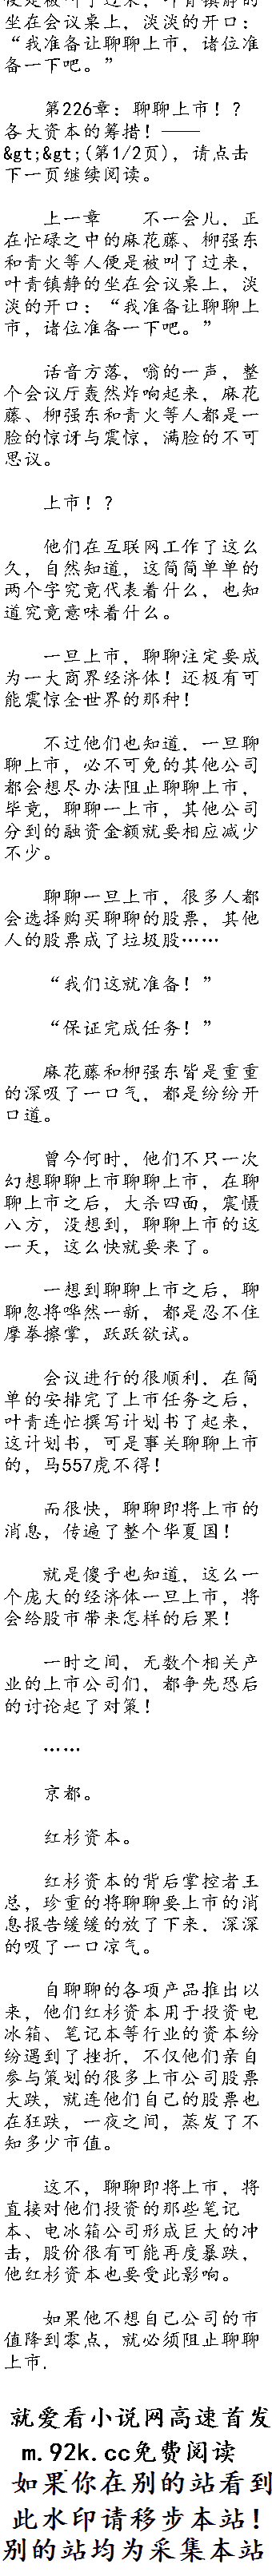 坐在会议桌上，淡淡的开口：
“我准备让聊聊上市，诸位准
备一下吧。”
第226章：聊聊上市！？
各大资本的筹措！——
&gt;&gt;(第1/2页)，请点击
下一页继续阅读。
上一章　　不一会儿，正
在忙碌之中的麻花藤、柳强东
和青火等人便是被叫了过来，
叶青镇静的坐在会议桌上，淡
淡的开口：“我准备让聊聊上
市，诸位准备一下吧。”
话音方落，嗡的一声，整
个会议厅轰然炸响起来，麻花
藤、柳强东和青火等人都是一
脸的惊讶与震惊，满脸的不可
思议。
上市！？
他们在互联网工作了这么
久，自然知道，这简简单单的
两个字究竟代表着什么，也知
道究竟意味着什么。
一旦上市，聊聊注定要成
为一大商界经济体！还极有可
能震惊全世界的那种！
不过他们也知道，一旦聊
聊上市，必不可免的其他公司
都会想尽办法阻止聊聊上市，
毕竟，聊聊一上市，其他公司
分到的融资金额就要相应减少
不少。
聊聊一旦上市，很多人都
会选择购买聊聊的股票，其他
人的股票成了垃圾股……
“我们这就准备！”
“保证完成任务！”
麻花藤和柳强东皆是重重
的深吸了一口气，都是纷纷开
口道。
曾今何时，他们不只一次
幻想聊聊上市聊聊上市，在聊
聊上市之后，大杀四面，震慑
八方，没想到，聊聊上市的这
一天，这么快就要来了。
一想到聊聊上市之后，聊
聊忽将哗然一新，都是忍不住
摩拳擦掌，跃跃欲试。
会议进行的很顺利，在简
单的安排完了上市任务之后，
叶青连忙撰写计划书了起来，
这计划书，可是事关聊聊上市
的，马557虎不得！
而很快，聊聊即将上市的
消息，传遍了整个华夏国！
就是傻子也知道，这么一
个庞大的经济体一旦上市，将
会给股市带来怎样的后果！
一时之间，无数个相关产
业的上市公司们，都争先恐后
的讨论起了对策！
……
京都。
红杉资本。
红杉资本的背后掌控者王
总，珍重的将聊聊要上市的消
息报告缓缓的放了下来，深深
的吸了一口凉气。
自聊聊的各项产品推出以
来，他们红杉资本用于投资电
冰箱、笔记本等行业的资本纷
纷遇到了挫折，不仅他们亲自
参与策划的很多上市公司股票
大跌，就连他们自己的股票也
在狂跌，一夜之间，蒸发了不
知多少市值。
这不，聊聊即将上市，将
直接对他们投资的那些笔记
本、电冰箱公司形成巨大的冲
击，股价很有可能再度暴跌，
他红杉资本也要受此影响。
如果他不想自己公司的市
值降到零点，就必须阻止聊聊
上市.
就爱看小说网高速首发
m.92k.cc免费阅读
如果你在别的站看到
此水印请移步本站！
别的站均为采集本站